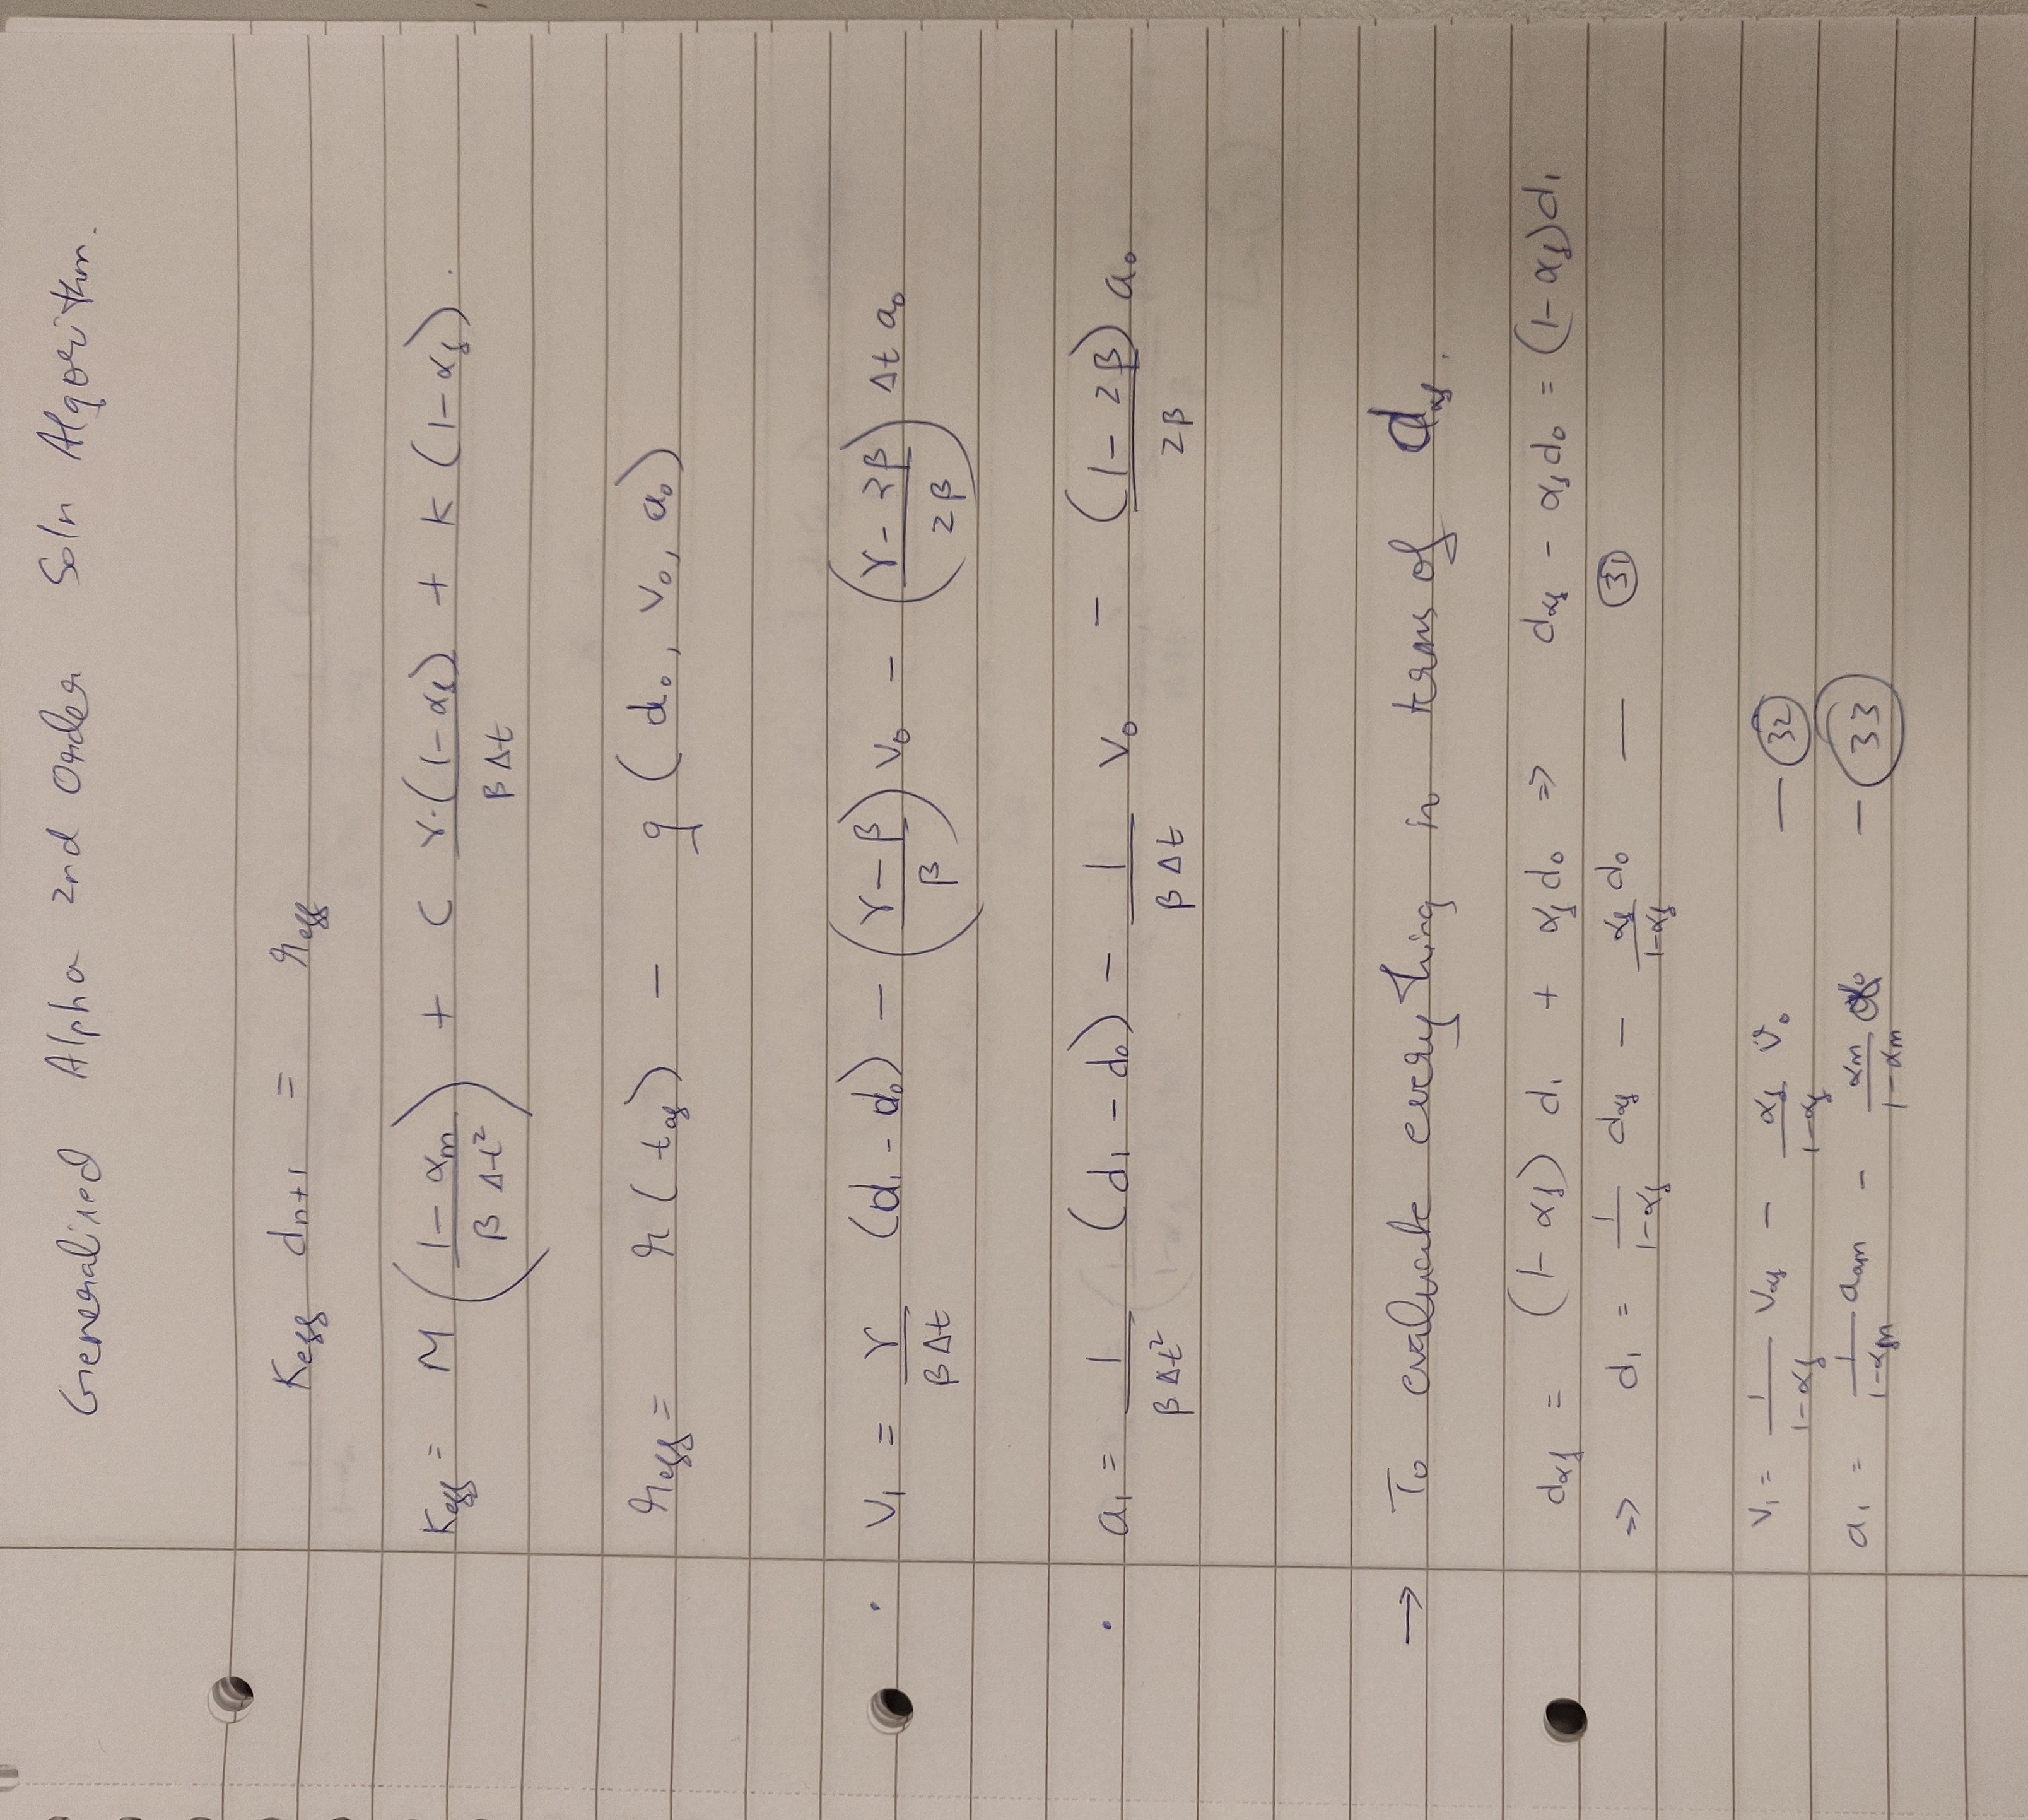 Generalised Alpha 2nd Order Soln Algorithm.
K_eff d_n+1 = r_eff
K_eff = M ( (1 - α_m) / (β Δt²) ) + C γ·(1 - α_f) / (β Δt) + K (1 - α_f).
r_eff = r ( t_αf ) - g ( d_0, v_0, a_0 )
· v_1 = γ / (β Δt) (d_1 - d_0) - ( (γ - β) / β ) v_0 - ( (γ - 2β) / 2β ) Δt a_0
· a_1 = 1 / (β Δt²) (d_1 - d_0) - 1 / (β Δt) v_0 - (1 - 2β) / 2β a_0
→ To evaluate everything in terms of d_αf.
d_αf = (1 - α_f) d_1 + α_f d_0 ⇒ d_αf - α_f d_0 = (1 - α_f) d_1
⇒ d_1 = 1 / (1 - α_f) d_αf - α_f / (1 - α_f) d_0 — (31)
v_1 = 1 / (1 - α_f) v_αf - α_f / (1 - α_f) v_0 — (32)
a_1 = 1 / (1 - α_m) a_αm - α_m / (1 - α_m) — (33)